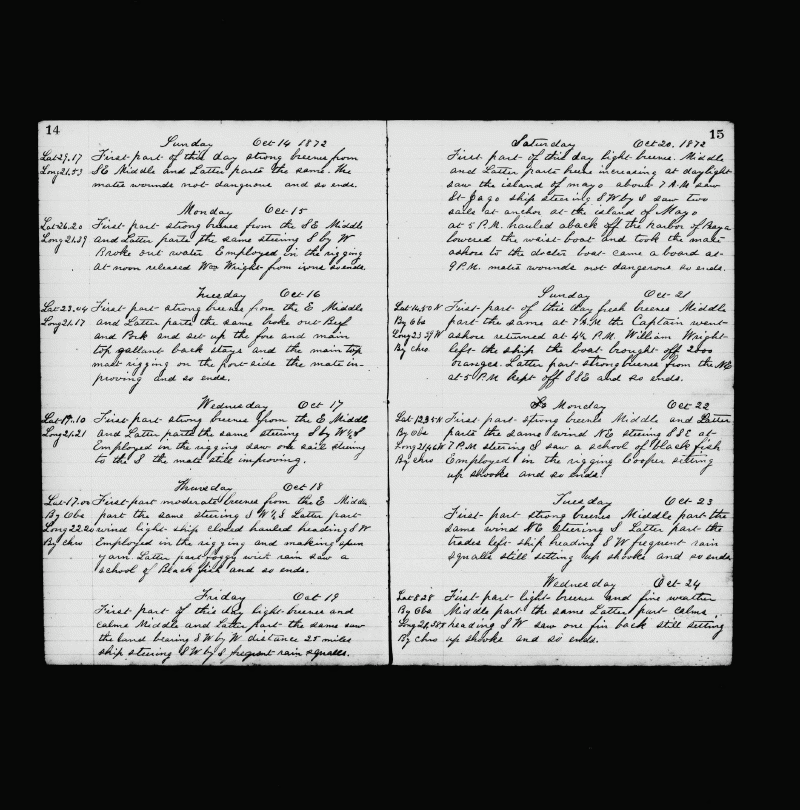 14
Sunday Oct 14 1872
Lat 29.17 First part of this day strong breeze from
Long 21.53 SE Middle and Latter parts the same. The
mates wounds not dangerous and so ends.
Monday Oct 15
Lat 26.20 First part strong breeze from the SE Middle
Long 21.39 and Latter parts the same steering S by W
Broke out water Employed in the rigging
At noon released Wm Wright from irons so ends.
Tuesday Oct 16
Lat 23.04 First part strong breeze from the E Middle
Long 21.17 and Latter parts the same broke out Beef
and Pork and set up the fore and main
top gallant back stays and the main top
mast rigging on the port side the mate im-
proving and so ends.
Wednesday Oct 17
Lat 19.10 First part strong breeze from the E Middle
Long 21.21 and Latter parts the same steering S by W 1/2 S
Employed in the rigging saw one sail steering
to the S the mate still improving.
Thursday Oct 18
Lat 17.00 First part moderate breezes from the E Middle
By Obs part the same steering SW 1/2 S Latter part
Long 22.20 wind light ship closed hauled heading SW
By Chro Employed in the rigging and making spun
yarn. Latter part foggy with rain saw a
school of Black fish and so ends.
Friday Oct 19
First part of this day light breeze and
calms Middle and Latter part the same saw
the land bearing SW by W distance 25 miles
ship steering SW by S frequent rain squalls.
15
Saturday Oct 20. 1872
First part of this day light breeze. Middle
and Latter parts breeze increasing at daylight
saw the island of mayo about 7 A.M saw
St Jago ship steering SW by S saw two
sails at anchor at the island of Mayo
at 5 P.M. hauled aback off the harbor of Baya
lowered the waist boat and took the mate
ashore to the doctor boat came a board at
9 P.M. mates wounds not dangerous so ends.
Sunday Oct 21
Lat 14.50 N First part of this day fresh breeze Middle
By Obs part the same at 7 A.M the Captain went
Long 23.39 W ashore returned at 4 1/2 P.M. William Wright
By Chro left the ship the boat brought off 2000
oranges. Latter part strong breeze from the NE
at 5 P.M kept off SSE and so ends.
Monday Oct 22
Lat 12.35 N First part strong breeze Middle and Latter
By Obs parts the same wind NE steering SSE at
Long 21.46 W 7 P.M steering S saw a school of black fish
By Chro Employed in the rigging Cooper setting
up shooks and so ends.
Tuesday Oct 23
First part strong breeze Middle part the
same wind NE steering S Latter part the
trades left ship heading SW frequent rain
squalls still setting up shooks and so ends
Wednesday Oct 24
Lat 8.28 First part light breeze and fine weather
By Obs Middle part the same Latter part calms
Long heading SW saw one fin back still setting
By Chro up shooks and so ends.